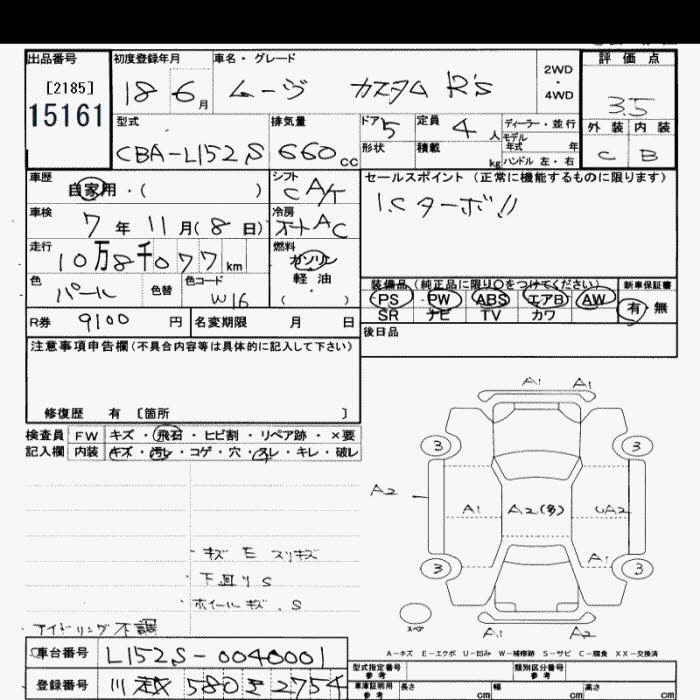 出品番号
[2185]
15161
初度登録年月
18 6月
車名・グレード
ムーヴ カスタム R's
2WD
・
4WD
評価点
3.5
外装 内装
C B
型式
CBA-L152S
排気量
660cc
ドア 5
形状
定員 4人
積載 kg
ディーラー・並行
モデル
年式 年
ハンドル 左・右
車歴
自家用・( )
シフト
C A/T
セールスポイント (正常に機能するものに限ります)
I.C ターボ!!
車検
7年 11月(8日)
冷房
オートAC
走行
10万8千077km
燃料
ガソリン
軽油
( ・ )
色
パール
色替
色コード
W16
装備品 (純正品に限り○をつけてください)
PS PW ABS エアB AW
SR ナビ TV カワ
新車保証書
有・無
R券 9100 円
名変期限 月 日
後日品
注意事項申告欄(不具合内容等は具体的に記入して下さい)
修復歴 有 [箇所 ]
検査員 FW キズ・飛石・ヒビ割・リペア跡・×要
記入欄 内装 キズ・汚レ・コゲ・穴・スレ・キレ・破レ
・キズ E スリキズ
・下回り S
・ホイールキズ . S
アイドリング不調
A1 A1
3 3
A2 A1 A2(多) UA2
A1
3 3
スペア
A1 A2
A-キズ E-エクボ U-凹み W-補修跡 S-サビ C-腐食 XX-交換済
車台番号 L152S-0040001
登録番号 川越 580 え 2754
型式指定番号
参考
類別区分番号
参考
車庫証明用
参考
長さ cm 幅 cm 高さ cm